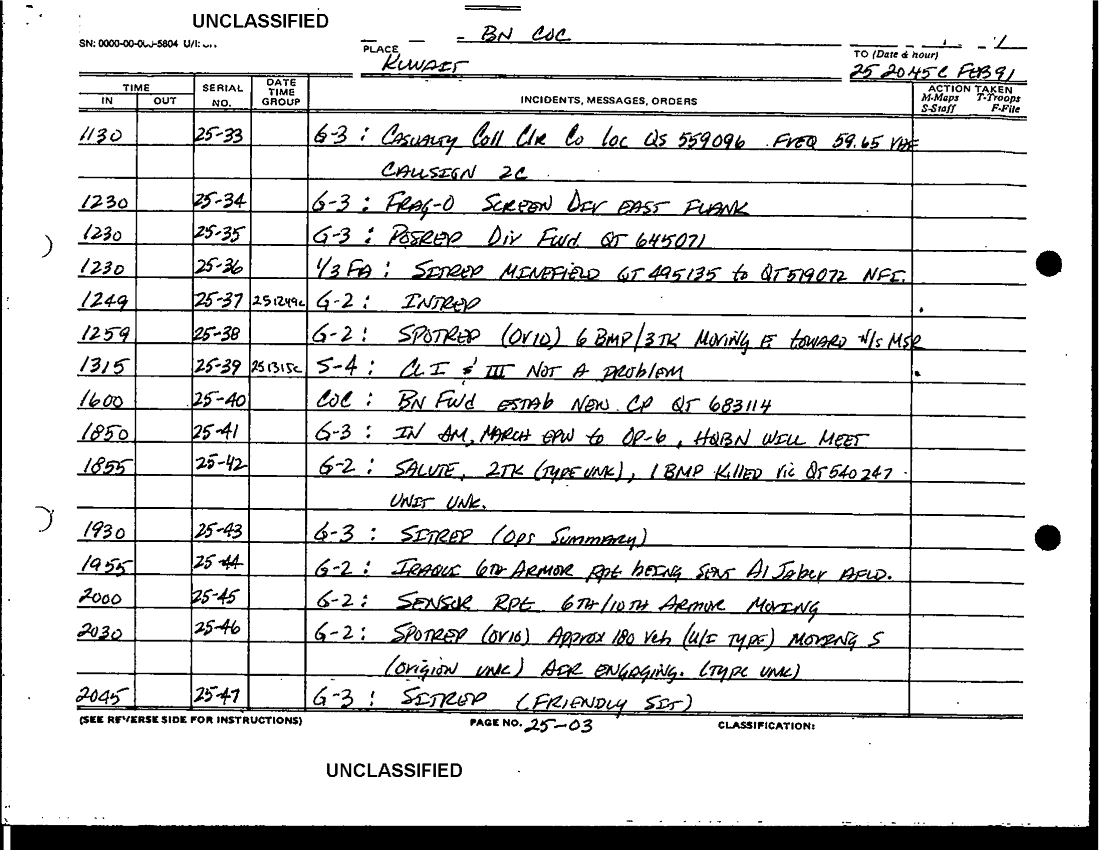 UNCLASSIFIED
BN COC
SN: 0000-00-000-5604 U/I:
PLACE
KUWAIT
TO (Date & hour)
25 2045C FEB 91
TIME
IN OUT
SERIAL NO.
DATE TIME GROUP
INCIDENTS, MESSAGES, ORDERS
ACTION TAKEN
M-Maps T-Troops
S-Staff F-File
1130 25-33 G-3: CASUALTY Coll Clr Co loc QS 559096 FREQ 59.65
CALLSIGN 2C
1230 25-34 G-3: FRAG-O SCREEN DIV EAST FLANK
1230 25-35 G-3: POSREP Div Fwd QT 645071
1230 25-36 1/3 FA: SITREP MINEFIELD QT 495135 to QT 519072 NFI.
1249 25-37 251249c G-2: INTREP
1259 25-38 G-2: SPOTREP (OV10) 6 BMP/3TK MOVING E TOWARD N/S MSR
1315 25-39 251315c S-4: CL I & III NOT A PROBLEM
1600 25-40 COC: BN FWD ESTAB NEW CP QT 683114
1850 25-41 G-3: IN AM, MARCH EPW to OP-6, HQBN WILL MEET
1855 25-42 G-2: SALUTE, 2TK (TYPE UNK), 1 BMP KILLED Vic QT 540247
UNIT UNK.
1930 25-43 G-3: SITREP (OPS SUMMARY)
1955 25-44 G-2: IRAQUI 6TH ARMOR RPT being SENT Al Jaber AFLD.
2000 25-45 G-2: SENSOR RPT 6TH/10TH ARMOR MOVING
2030 25-46 G-2: SPOTREP (OV10) Approx 180 Veh (U/I TYPE) MOVING S
(origion UNK) AIR ENGAGING. (TYPE UNK)
2045 25-47 G-3: SITREP (FRIENDLY SIT)
(SEE REVERSE SIDE FOR INSTRUCTIONS) PAGE NO. 25-03 CLASSIFICATION:
UNCLASSIFIED